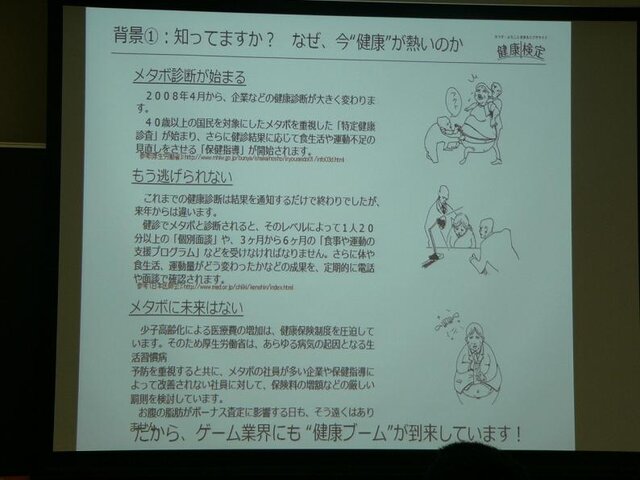 背景①：知ってますか？　なぜ、今“健康”が熱いのか
健康検定
メタボ診断が始まる
２００８年４月から、企業などの健康診断が大きく変わりま
す。
４０歳以上の国民を対象にしたメタボを重視した「特定健康
診査」が始まり、さらに健診結果に応じて食生活や運動不足の
見直しをさせる「保健指導」が開始されます。
もう逃げられない
これまでの健康診断は結果を通知するだけで終わりでしたが、
来年からは違います。
健診でメタボと診断されると、そのレベルによって１人２０
分以上の「個別面談」や、３ヶ月から６ヶ月の「食事や運動の
支援プログラム」などを受けなければなりません。さらに体や
食生活、運動量がどう変わったかなどの成果を、定期的に電話
や面談で確認されます。
メタボに未来はない
少子高齢化による医療費の増加は、健康保険制度を圧迫して
います。そのため厚生労働省は、あらゆる病気の起因となる生
活習慣病
予防を重視すると共に、メタボの社員が多い企業や保健指導に
よって改善されない社員に対して、保険料の増額などの厳しい
罰則を検討しています。
お腹の脂肪がボーナス査定に影響する日も、そう遠くはあり
ません。
だから、ゲーム業界にも“健康ブーム”が到来しています！